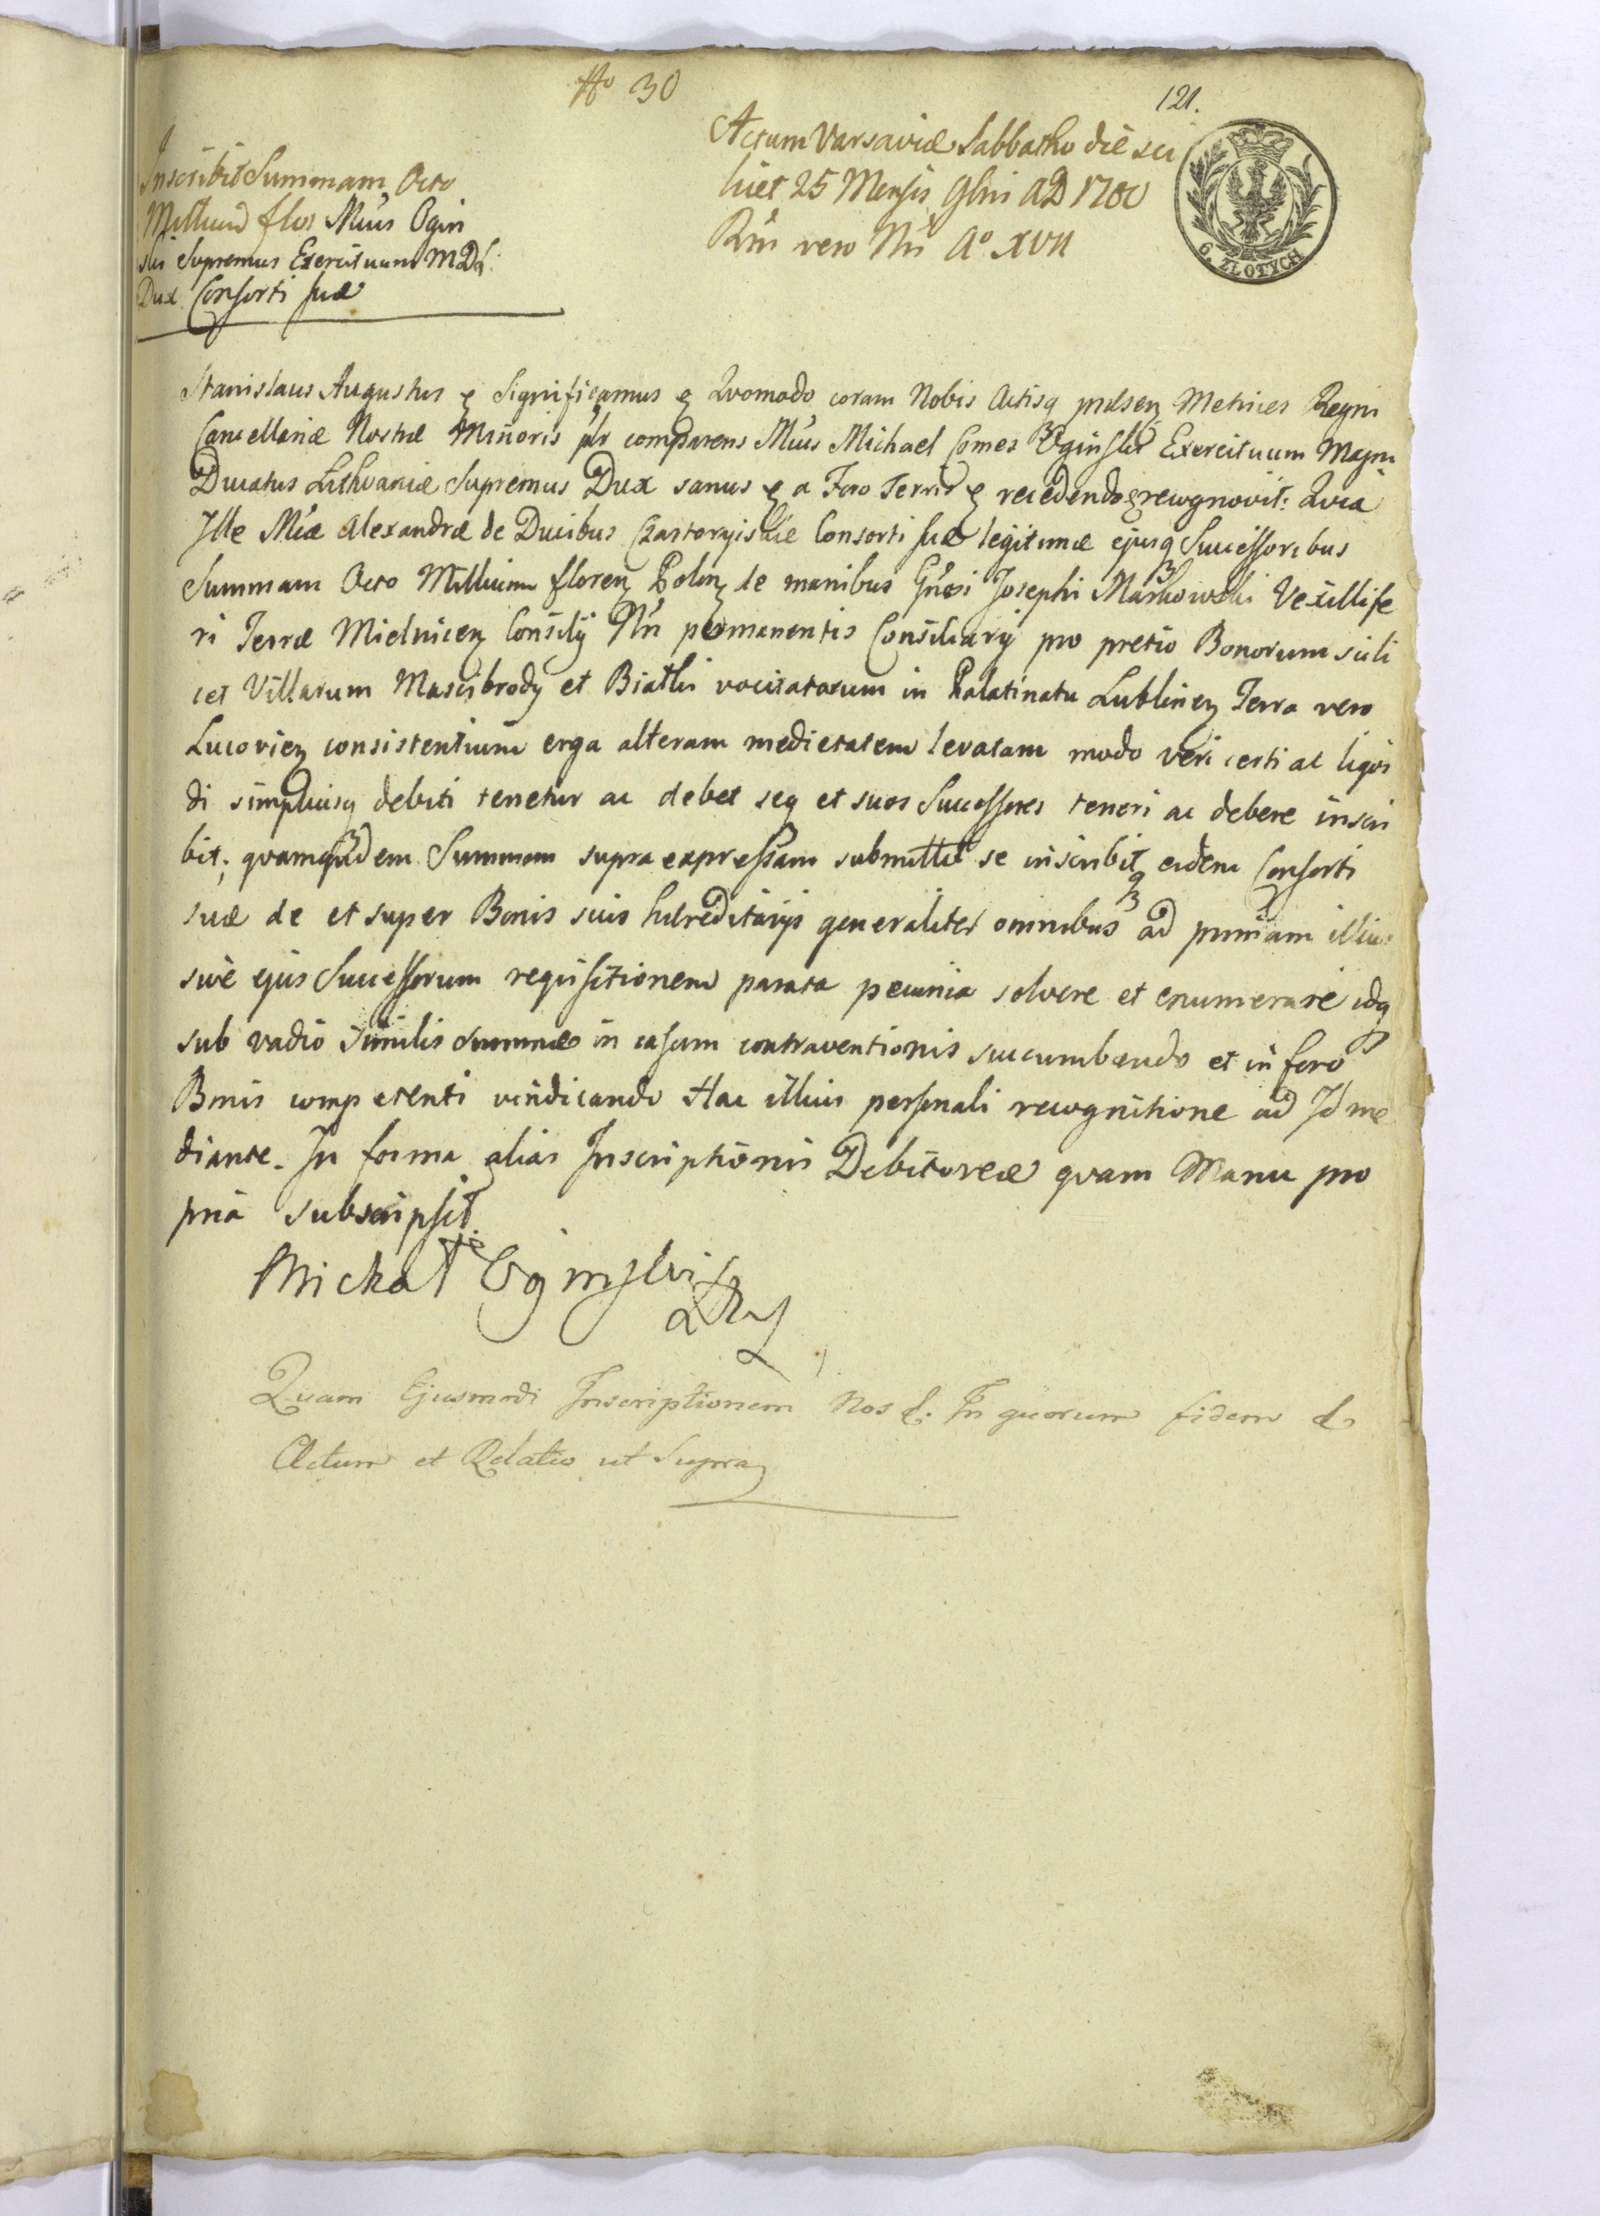 No 30
121.
Actum Varsaviæ Sabbatho die sci
licet 25 Mensis 9bri AD 1780
Rni vero Nri Ao XVII
6. ZŁOTYCH
Inscribit Summam Octo
Millium flor Mcus Ogin
ski Supremus Exercituum MDL:
Dux Consorti suæ
Stanislaus Augustus & Significamus & Quomodo coram Nobis Actisq præsen Metrices Regni
Cancellariæ Nostræ Minoris plr comparens Mcus Michael Comes Oginski Exercituum Magni
Ducatus Lithvaniæ Supremus Dux sanus & a Foro Terrio & recedendo & recognovit: Quia
Ille Mcæ Alexandræ de Ducibus Czartoryiskie Consorti suæ legitimæ ejusq Successoribus
Summam Octo Millium floren Polon de manibus Gnosi Josephi Markowski Vexillife
ri Terræ Mielnicen Consilij Nri permanentis Consiliarij pro pretio Bonorum scili
cet Villarum Mascibrody et Białki vocitatarum in Palatinatu Lublinen Terra vero
Lucovien consistentium erga alteram medietatem levatam modo veri certi ac liqvi
di simplicisq debiti tenetur ac debet seq et suos Successores teneri ac debere inscri
bit; quamqvidem Summam supra expressam submittit se inscribitq eidem Consorti
suæ de et super Bonis suis hæreditarijs generaliter omnibus ad primam illius
sive ejus Successorum requisitionem parata pecunia solvere et enumerare idq
sub vadio similis summæ in casum contraventionis succumbendo et in foro
Bonis competenti vindicando Hac illius personali recognitione ad Id me
diante. In forma alias Inscriptionis Debitoreæ qvam Manu pro
pria subscripsit.
Michał Oginski
Quam Ejusmodi Inscriptionem Nos &. In quorum fidem &
Actum et Relatio ut Supra